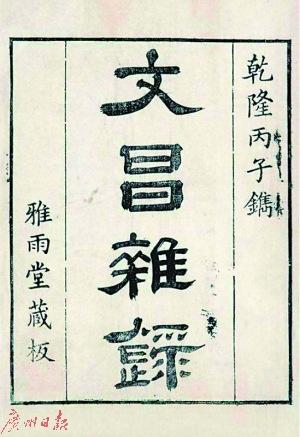 乾隆丙子鐫
文昌雜錄
雅雨堂蔵板
廣州日報